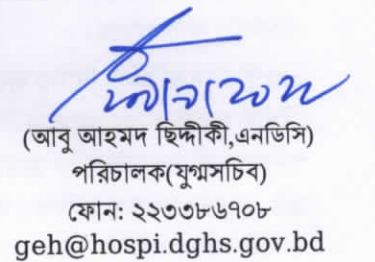 (আবু আহমদ ছিদ্দীকী,এনডিসি)
পরিচালক(যুগ্মসচিব)
ফোন: ২২৩৩৮৬৭০৮
geh@hospi.dghs.gov.bd